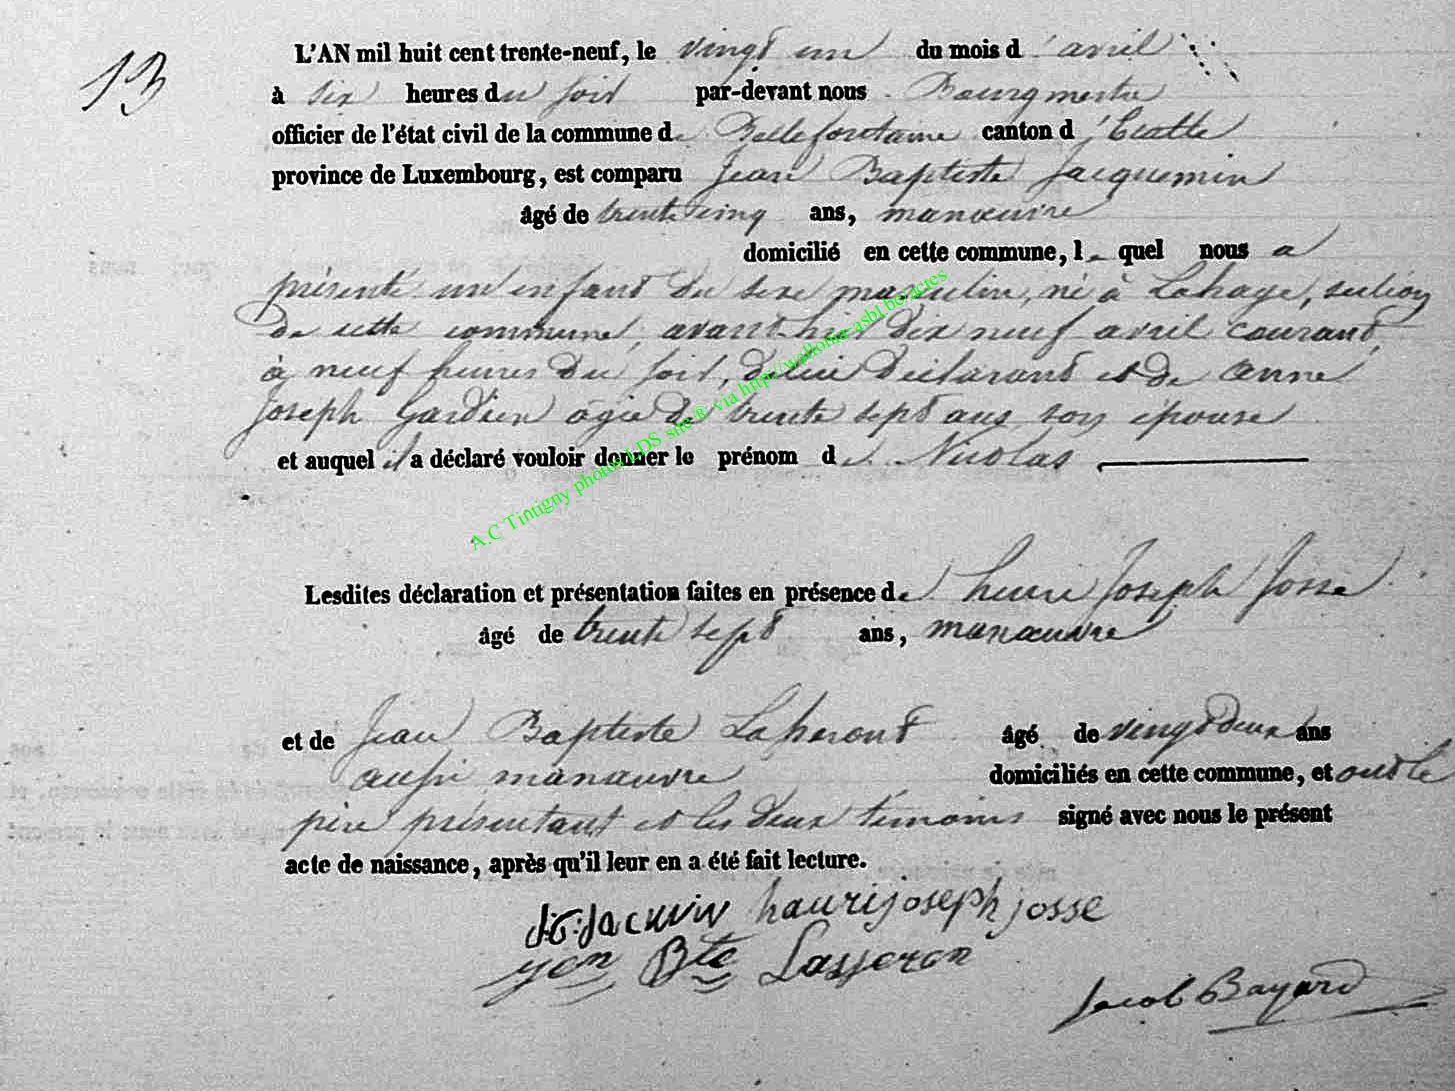 13
L'AN mil huit cent trente-neuf, le vingt un du mois d'avril
à six heures du soir par-devant nous Bourgmestre
officier de l'état civil de la commune de Bellefontaine canton d'Etalle
province de Luxembourg, est comparu Jean Baptiste Jacquemin
âgé de trente cinq ans, manœuvre
domicilié en cette commune, le quel nous a
présenté un enfant du sexe masculin, né à Lahage, section
de cette commune, avant hier dix neuf avril courant,
à neuf heures du soir, de lui déclarant et de Anne
Joseph Gardien âgée de trente sept ans son épouse
et auquel il a déclaré vouloir donner le prénom de Nicolas
A.C Tintigny photos LDS site ® via http://wallonia-asbl.be/actes
Lesdites déclaration et présentation faites en présence de henri Joseph Josse
âgé de trente sept ans, manœuvre
et de Jean Baptiste Laperont âgé de vingt deux ans
aussi manœuvre domiciliés en cette commune, et ont le
père présentant et les deux témoins signé avec nous le présent
acte de naissance, après qu'il leur en a été fait lecture.
haurijoseph josse
Bte Lasseron
Jacob Bayard